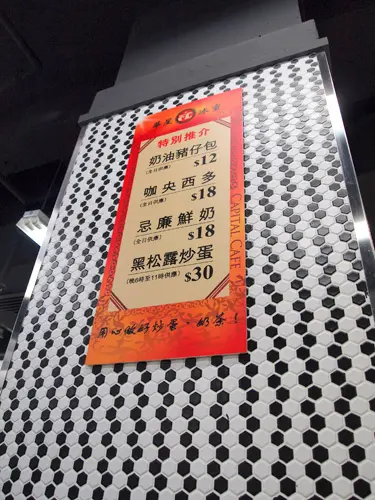 華星冰室
特別推介
奶油豬仔包
(全日供應) $12
咖央西多
(全日供應) $18
忌廉鮮奶
(全日供應) $18
黑松露炒蛋
(晚6時至11時供應) $30
用心做好炒蛋、奶茶！
CAPITAL CAFE